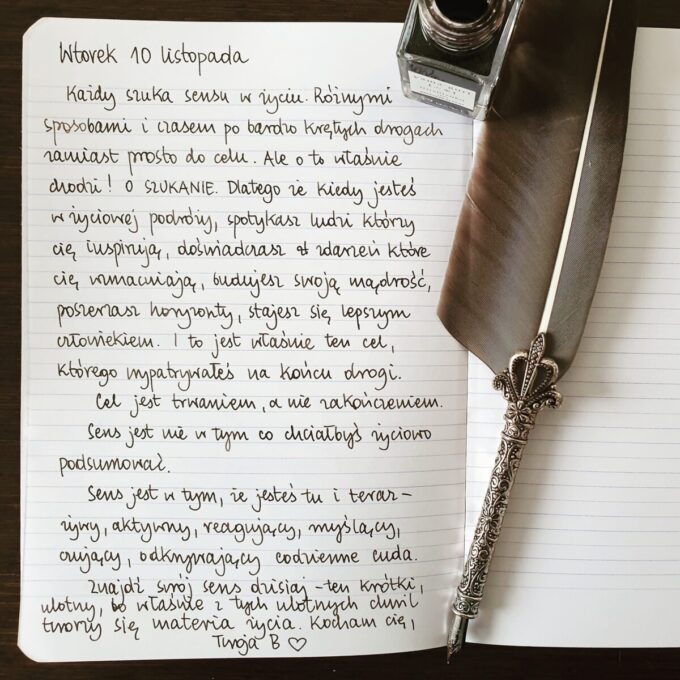 Wtorek 10 listopada
Każdy szuka sensu w życiu. Różnymi
sposobami i czasem po bardzo krętych drogach
zamiast prosto do celu. Ale o to właśnie
chodzi! O SZUKANIE. Dlatego że kiedy jesteś
w życiowej podróży, spotykasz ludzi którzy
cię inspirują, doświadczasz zdarzeń które
cię wzmacniają, budujesz swoją mądrość,
poszerzasz horyzonty, stajesz się lepszym
człowiekiem. I to jest właśnie ten cel,
którego wypatrywałeś na końcu drogi.
Cel jest trwaniem, a nie zakończeniem.
Sens jest nie w tym co chciałbyś życiowo
podsumować.
Sens jest w tym, że jesteś tu i teraz -
żywy, aktywny, reagujący, myślący,
czujący, odkrywający codzienne cuda.
Znajdź swój sens dzisiaj - ten krótki,
ulotny, bo właśnie z tych ulotnych chwil
tworzy się materia życia. Kocham cię,
Twoja B ♡